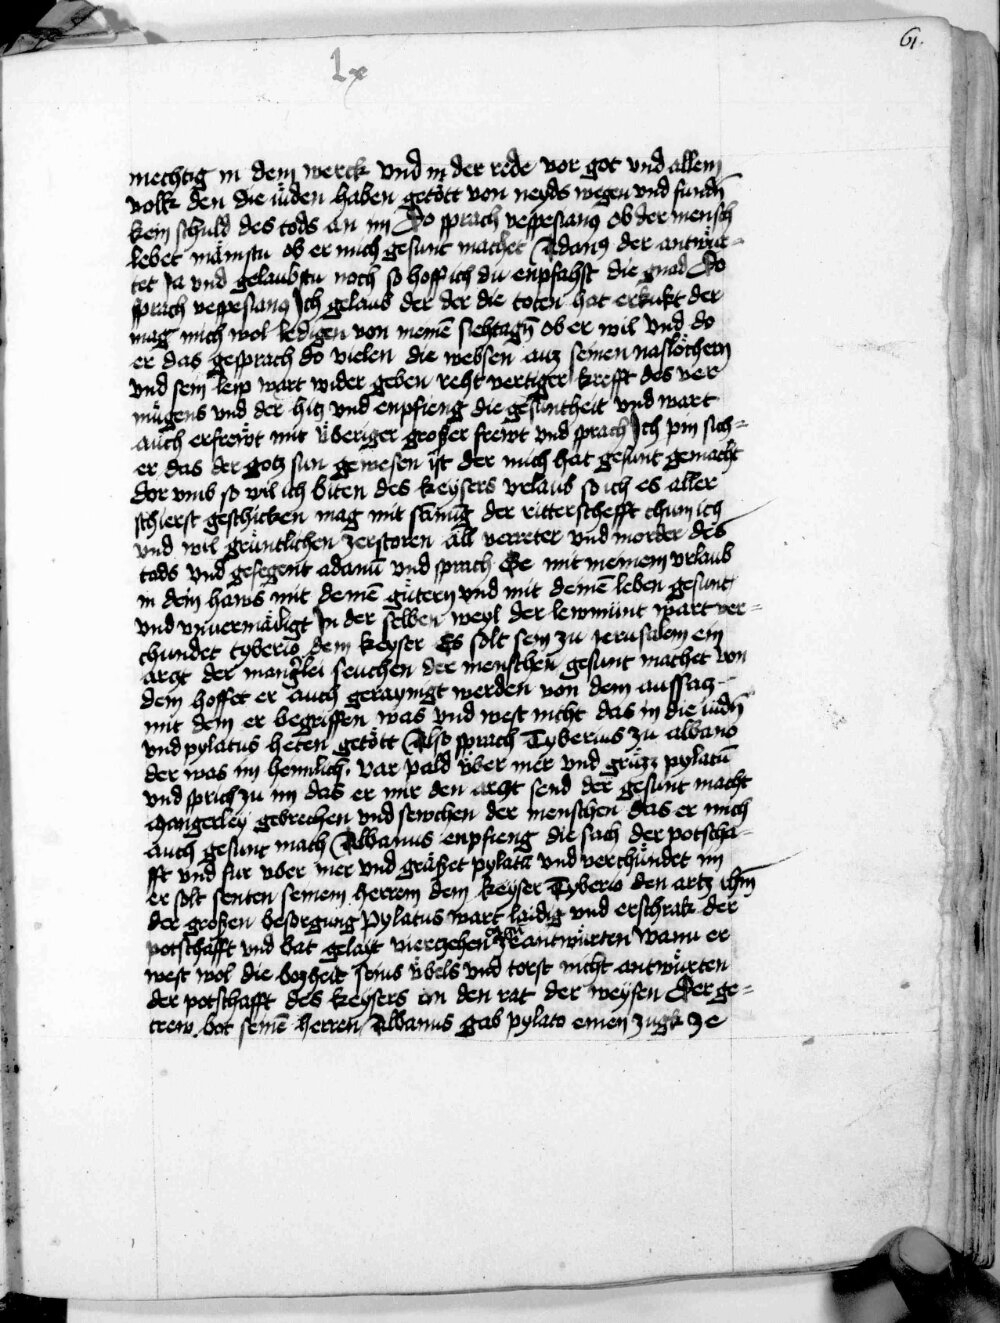 61.
lx
mechtig in dem werck vnd in der rede vor got vnd allem
volk den die iüden haben getött von neyds wegen vnd fundn̄
kein schuld des tods an im Do sprach vespesianꝰ ob der mensch
lebet mainstu ob er mich gesunt machet Adanꝰ der antwür-
tet Ja vnd gelaubstu noch so hoff ich du enpfahst die gnad Do
sprach vespesianꝰ Ich gelaub der der die toten hat erkukt der
mag mich wol ledigen von meinē siechtagn̄ ob er wil vnd do
er das gesprach do vielen die websen auz seinen naslöchern
vnd sein leip wart wider geben reht vertiger krefft des ver
mügens vnd der hitz vnd enpfieng die gesuntheit vnd wart
auch erfrewt mit vberiger großer frewt vnd sprach Ich pin sich-
er das der gotz sun gewesen ist der mich hat gesunt gemacht
dor vmb so wil ich biten des keysers vrlaub so ich es aller
schierst geschicken mag mit samūg der ritterschefft chum ich
vnd wil gruntlichen zerstoren all verreter vnd morder des
tods vnd gesegent adanū vnd sprach Ge mit meinem vrlaub
in dein haws mit deinē gütern vnd mit deinē leben gesunt
vnd vnuermäiligt In der selben weyl der lewmünt wart ver-
chundet tyberio dem keyser Es solt sein zu jerusalem ein
arczt der mangerlei seuchen der menschen gesunt machet von
dem hoffet er auch geraynigt werden von dem aussatz
mit dem er begriffen was vnd west nicht das in die iudn̄
vnd pylatus heten getött Also sprach Tyberius zu albano
der was im heimlich var pald vber mer vnd grüzz pylatū
vnd sprich zu im das er mir den arczt send der gesunt macht
mangerley gebrechen vnd sewchen der menschen das er mich
auch gesunt mach Albanus enpfieng die sach der potscha-
fft vnd fur vber mer vnd grüßet pylatū vnd verchündet im
er solt senten seinem herren dem keyser Tyberio den artz ihm̄
der großen besorgung Pylatus wart laidig vnd erschrak der
potschafft vnd bat gelait vierczehen tag ze antwürten wann er
west wol die bozheit seins übels vnd torst nicht antwürten
der potschafft des keysers on den rat der weysen Der ge-
trew bot seinē herren Albanus gab pylato einen zugk ze